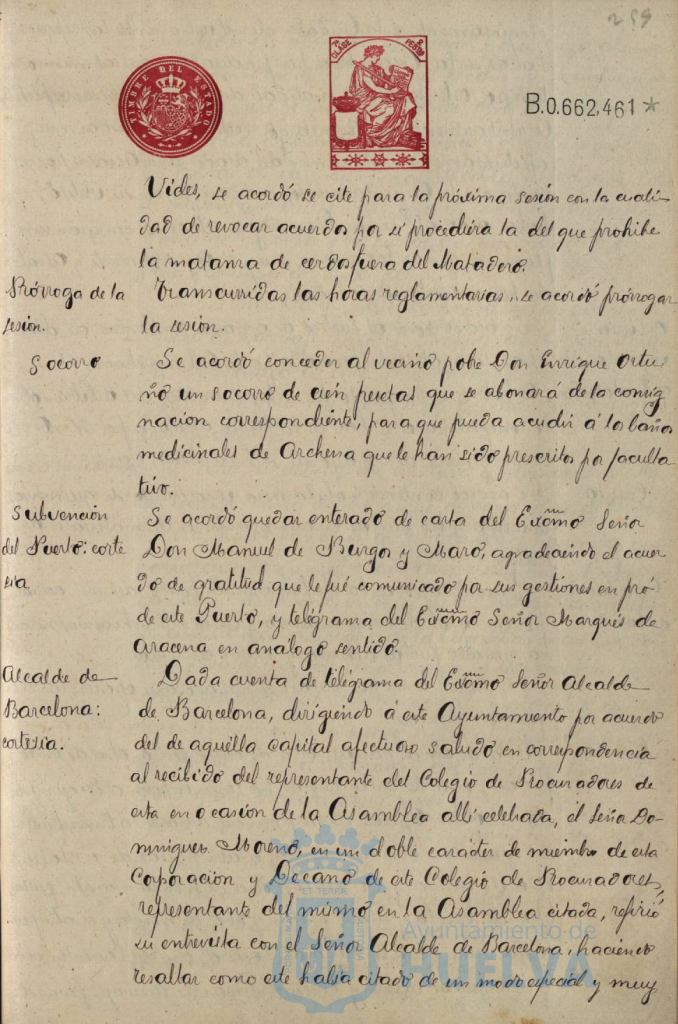 259
TIMBRE DEL ESTADO
7ª CLASE 2 PESETAS
B.0.662,461 *
Vides, se acordó se cite para la próxima sesión con la cuali-
dad de revocar acuerdos por si procediera la del que prohibe
la matanza de cerdos fuera del Matadero.
Prórroga de la
sesión.
Transcurridas las horas reglamentarias, se acordó prórrogar
la sesión.
Socorro
Se acordó conceder al vecino pobre Don Enrique Ortu-
ño un socorro de cien pesetas que se abonará de la consig
nacion correspondiente, para que pueda acudir á los baños
medicinales de Archena que le han sido prescritos por faculta
tivo.
Subvención
del Puerto: corte
sia.
Se acordó quedar enterado de carta del Excmo Señor
Don Manuel de Burgos y Mazo, agradeciendo el acuer-
do de gratitud que le fué comunicado por sus gestiones en pró
de este Puerto, y telégrama del Excmo Señor Marqués de
Aracena en análogo sentido.
Alcalde de
Barcelona:
cortesia.
Dada cuenta de telégrama del Excmo Señor Alcalde
de Barcelona, dirigiendo á este Ayuntamiento por acuerdo
del de aquella capital afectuoso saludo en correspondencia
al recibido del representante del Colegio de Procuradores de
esta en ocasión de la Asamblea alli celebrada, el Señor Do-
minguez Moreno, en su doble carácter de miembro de esta
Corporación y Decano de este Colegio de Procuradores,
representante del mismo en la Asamblea citada, refirió
su entrevista con el Señor Alcalde de Barcelona, haciendo
resaltar como este habia citado de un modo especial y muy
Ayuntamiento de
HUELVA